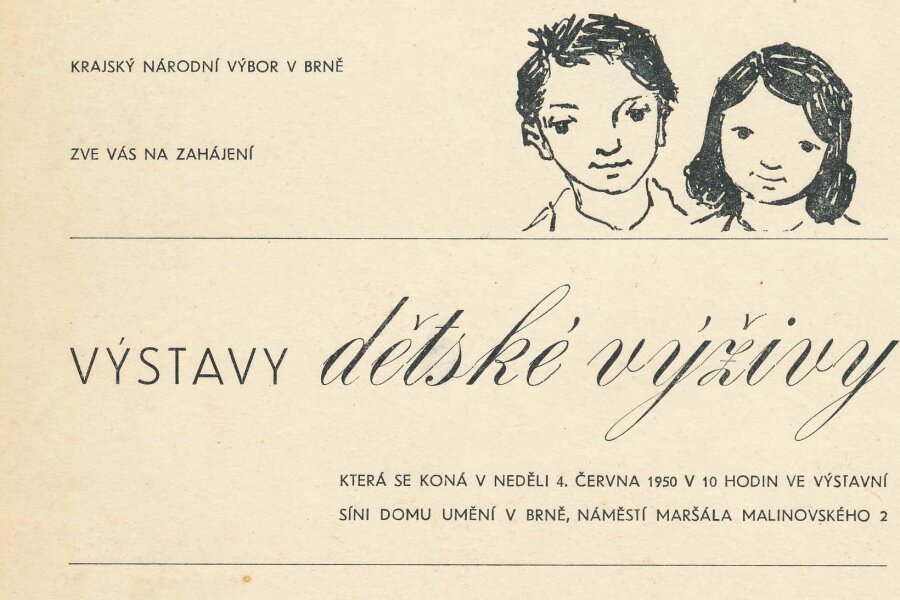 KRAJSKÝ NÁRODNÍ VÝBOR V BRNĚ
ZVE VÁS NA ZAHÁJENÍ
VÝSTAVY dětské výživy
KTERÁ SE KONÁ V NEDĚLI 4. ČERVNA 1950 V 10 HODIN VE VÝSTAVNÍ
SÍNI DOMU UMĚNÍ V BRNĚ, NÁMĚSTÍ MARŠÁLA MALINOVSKÉHO 2